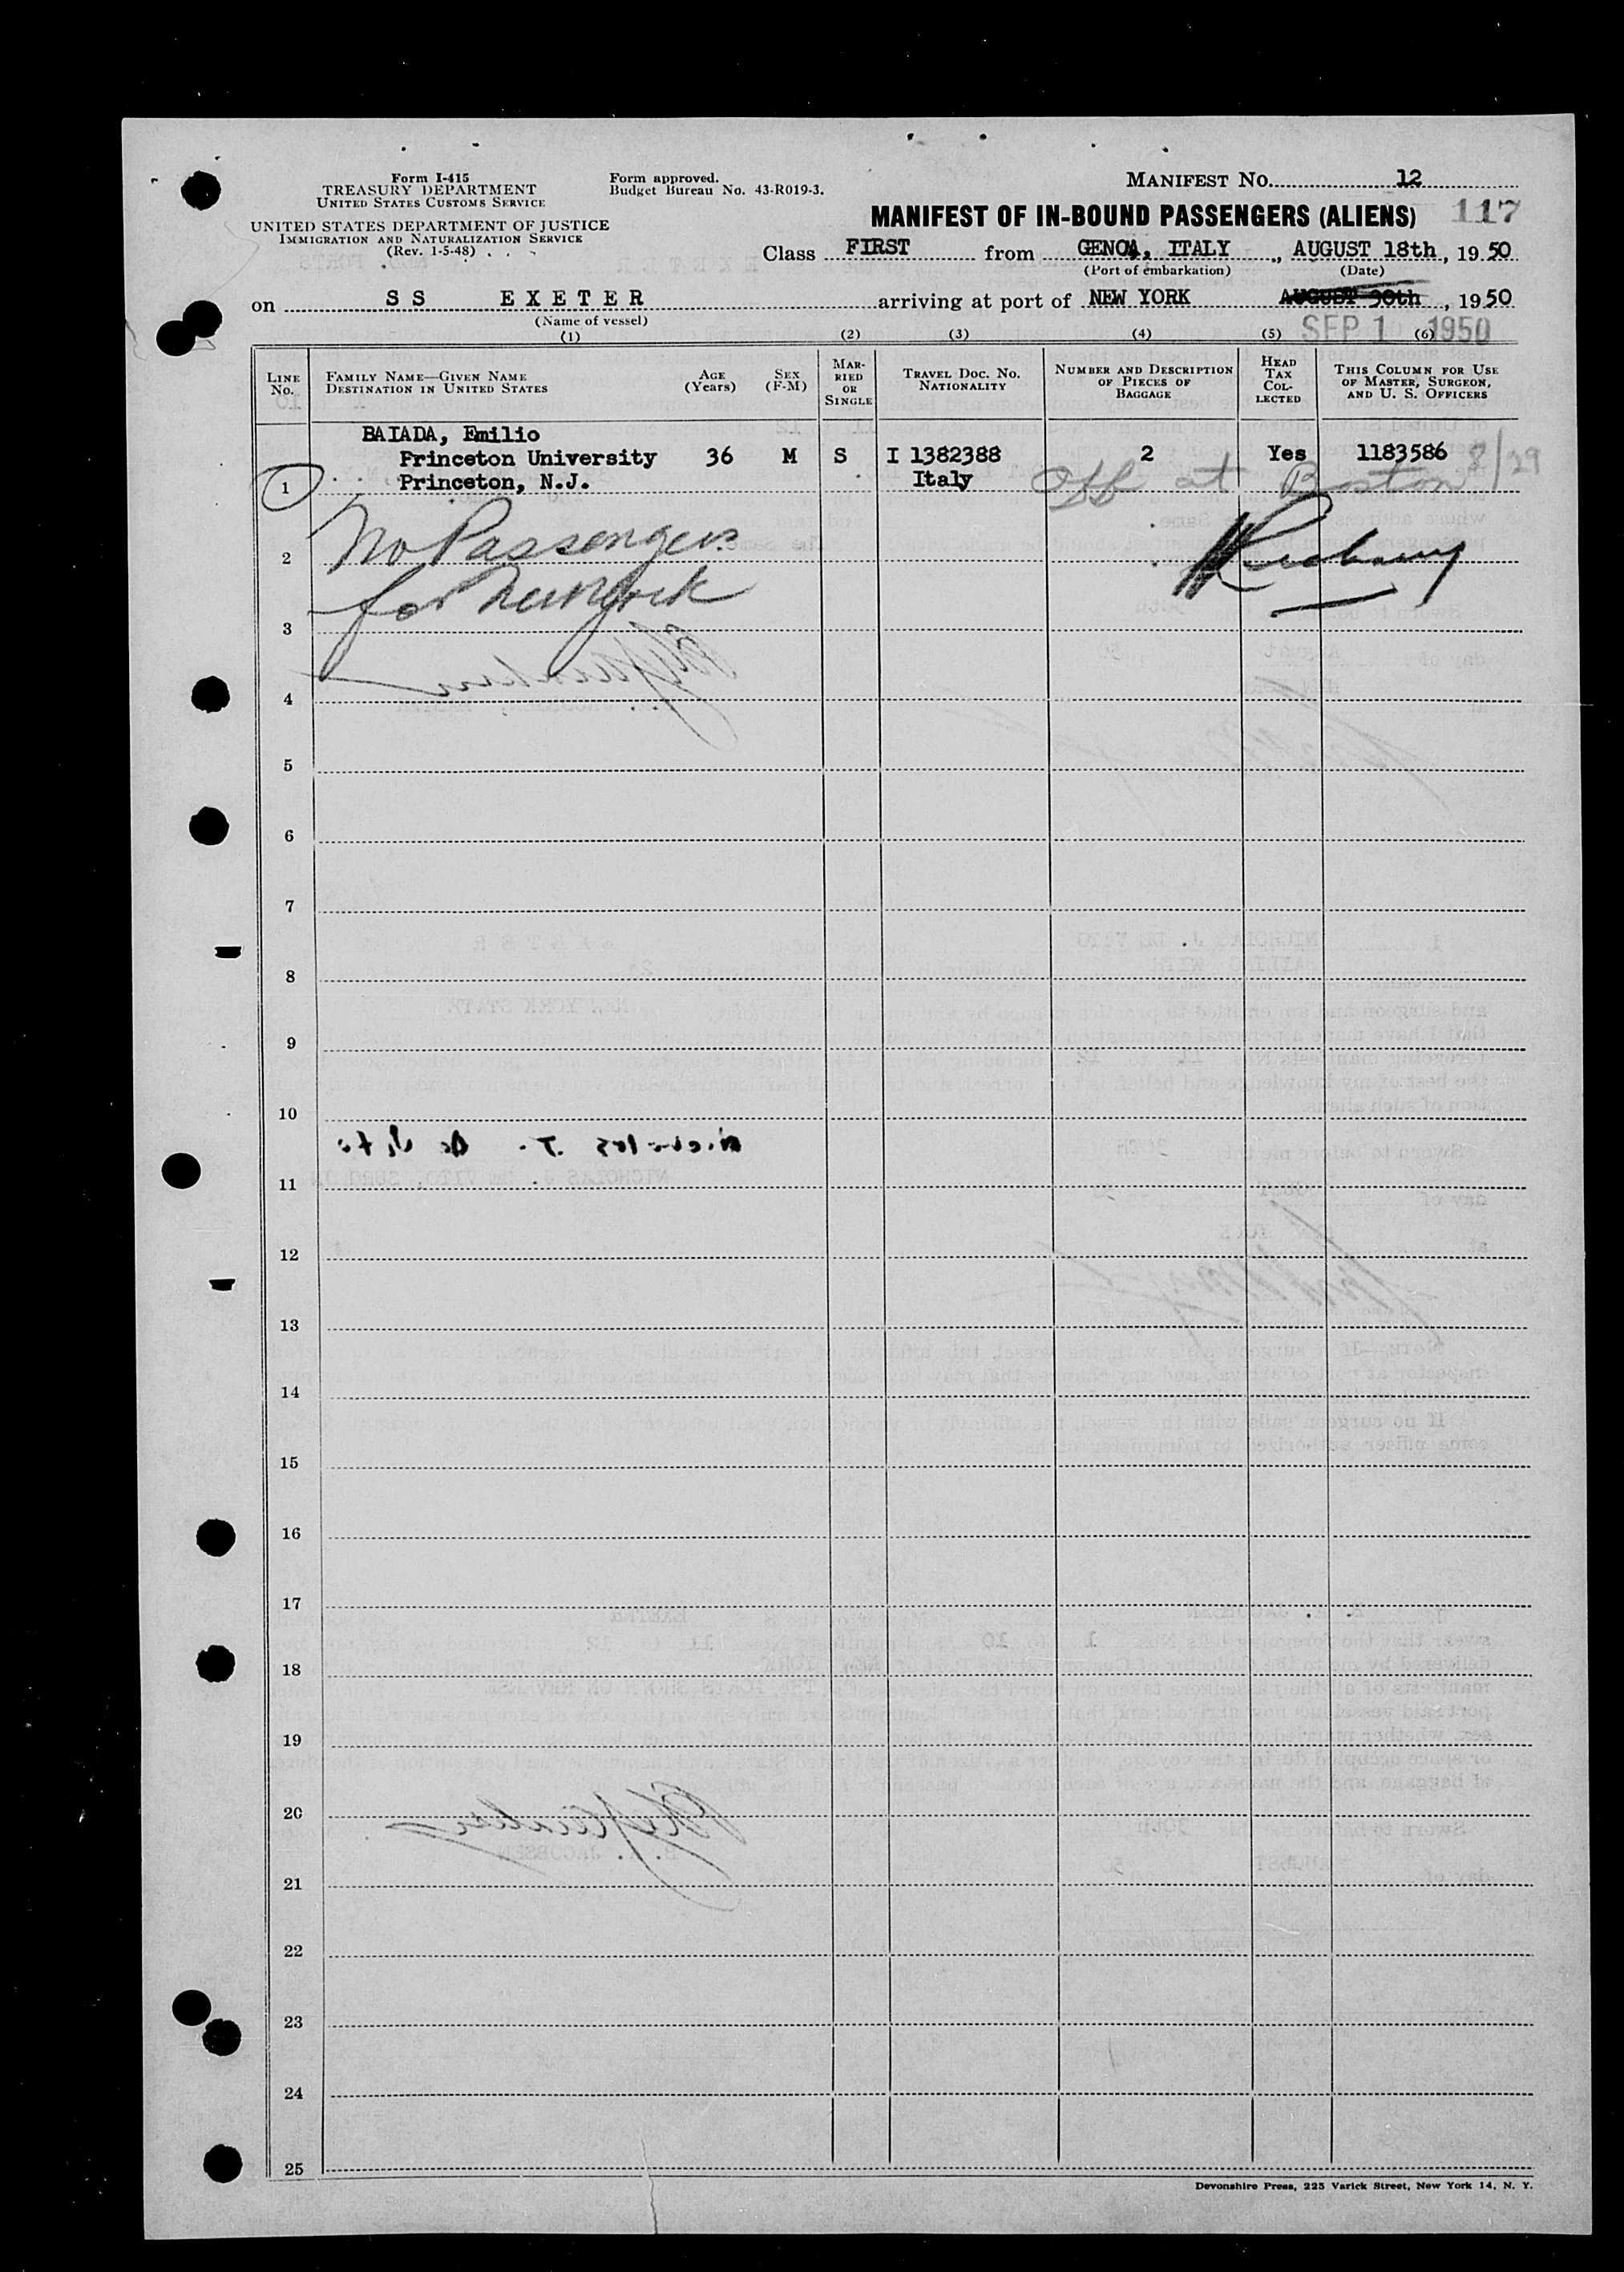 Form I-415
TREASURY DEPARTMENT
UNITED STATES CUSTOMS SERVICE
UNITED STATES DEPARTMENT OF JUSTICE
IMMIGRATION AND NATURALIZATION SERVICE
(Rev. 1-5-48)
Form approved.
Budget Bureau No. 43-R019-3.
MANIFEST NO. 12
MANIFEST OF IN-BOUND PASSENGERS (ALIENS) 117
Class FIRST from GENOA, ITALY, AUGUST 18th, 1950
(Port of embarkation) (Date)
on SS EXETER arriving at port of NEW YORK AUGUST 30th, 1950
(Name of vessel)
SEP 1 1950
(1) (2) (3) (4) (5) (6)
LINE No.
FAMILY NAME—GIVEN NAME
DESTINATION IN UNITED STATES
AGE (Years)
SEX (F-M)
MARRIED OR SINGLE
TRAVEL DOC. NO. NATIONALITY
NUMBER AND DESCRIPTION OF PIECES OF BAGGAGE
HEAD TAX COLLECTED
THIS COLUMN FOR USE OF MASTER, SURGEON, AND U. S. OFFICERS
BAIADA, Emilio
Princeton University 36 M S I 1382388 2 Yes 1183586 8/29
1 Princeton, N.J. Italy Off at Boston
No Passengers
2
for New York
3
4
5
6
7
8
9
10
11
12
13
14
15
16
17
18
19
20
21
22
23
24
25
Devonshire Press, 225 Varick Street, New York 14, N. Y.